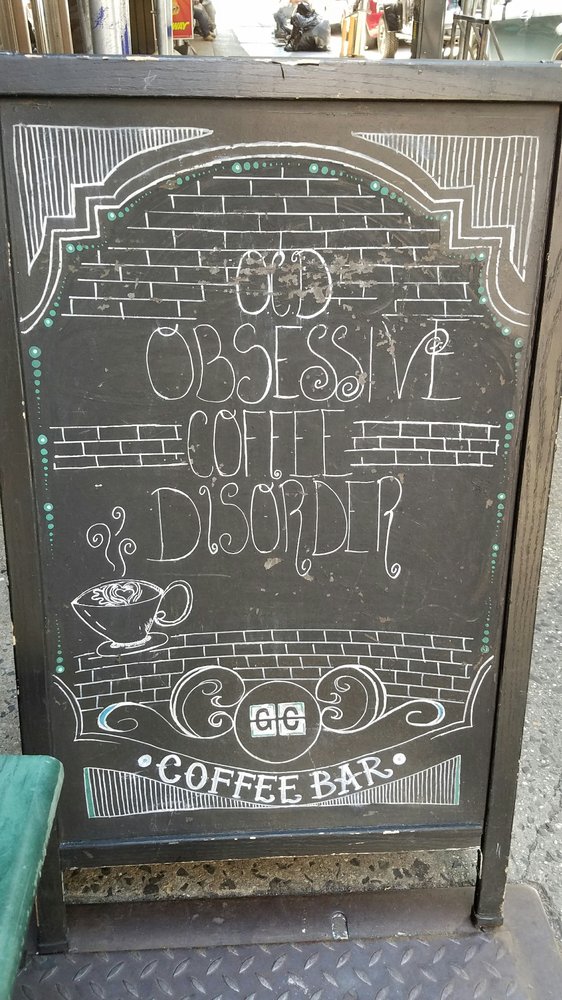 WAY
OCD
OBSESSIVE
COFFEE
DISORDER
GC
COFFEE BAR